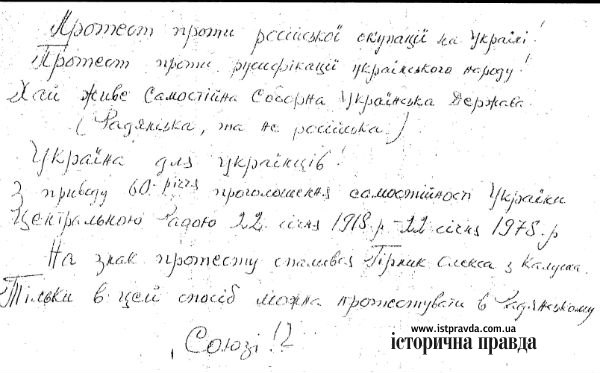 Протест проти російської окупації на Україні!
Протест проти русифікації українського народу!
Хай живе Самостійна Соборна Українська Держава.
(Радянська, та не російська.)
Україна для українців!
З приводу 60-річчя проголошення самостійності України
Центральною Радою 22 січня 1918 р.-22 січня 1978 р.
На знак протесту спалився Гірник Олекса з Калуша.
Тільки в цей спосіб можна протестувати в Радянському
Союзі!?
www.istpravda.com.ua
історична правда